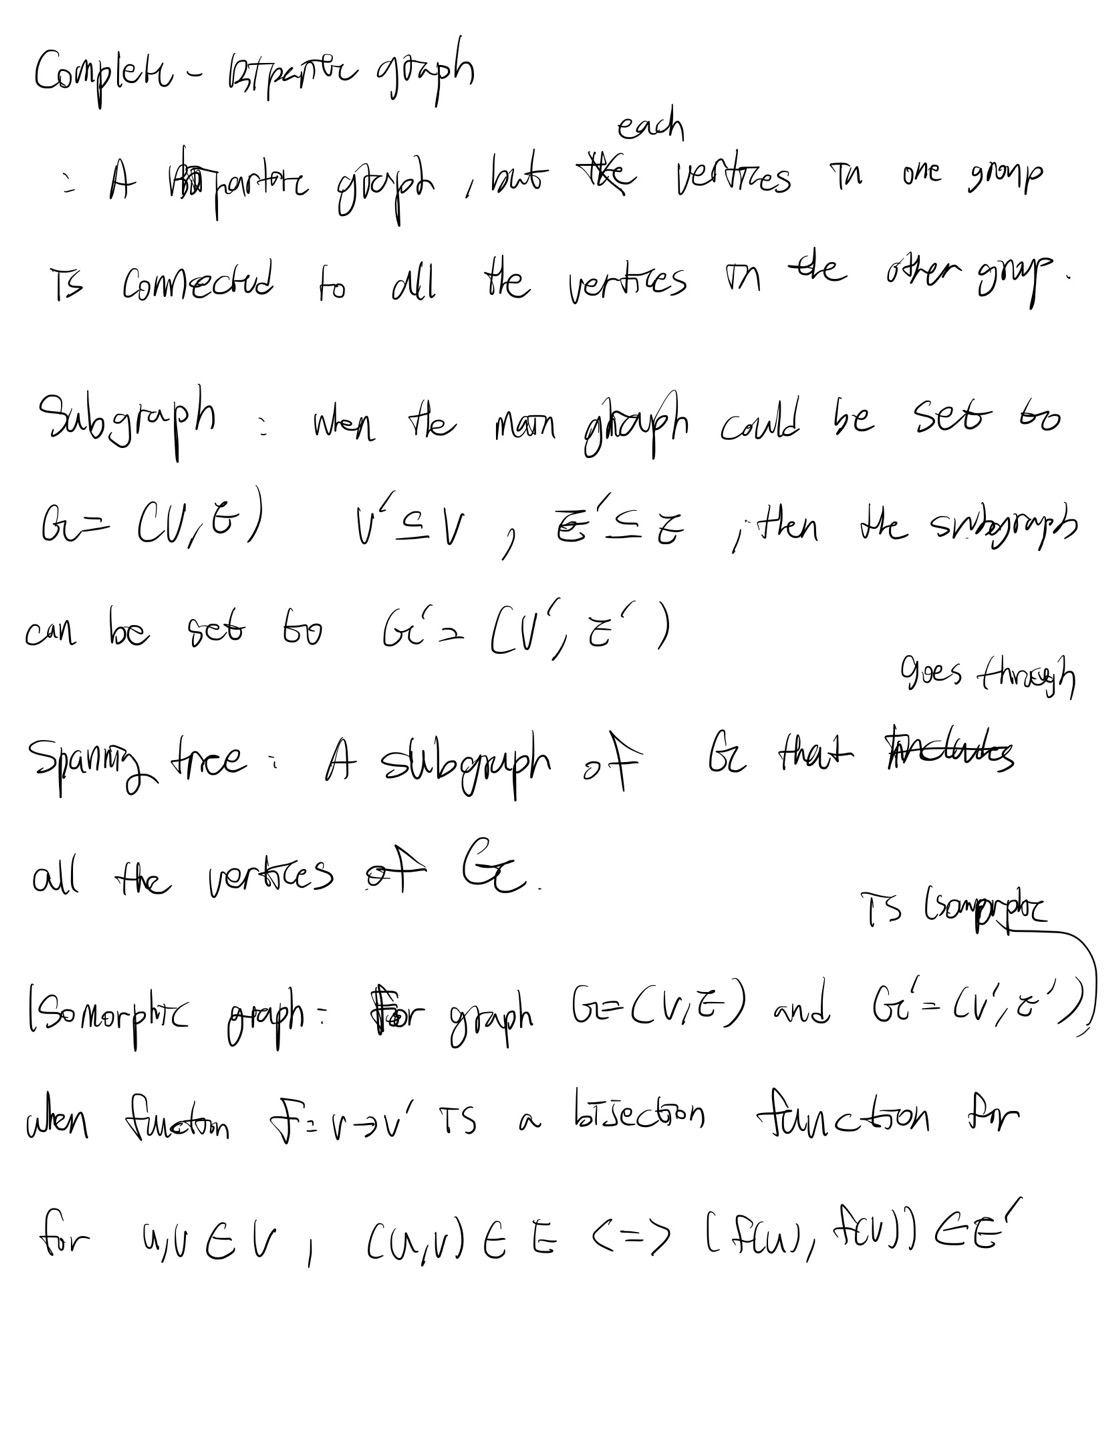 Complete - Bipartite graph
each
: A bipartite graph, but the vertices in one group
is connected to all the vertices in the other group.
Subgraph : when the main graph could be set to
G = (V, E) V' ⊆ V , E' ⊆ E , then the subgraph
can be set to G' = (V', E')
goes through
Spanning tree : A subgraph of G that includes
all the vertices of G.
is isomorphic
Isomorphic graph : For graph G=(V,E) and G'=(V',E')
when function F: V→V' is a bijection function for
for u,v ∈ V , (u,v) ∈ E <=> (f(u), f(v)) ∈ E'